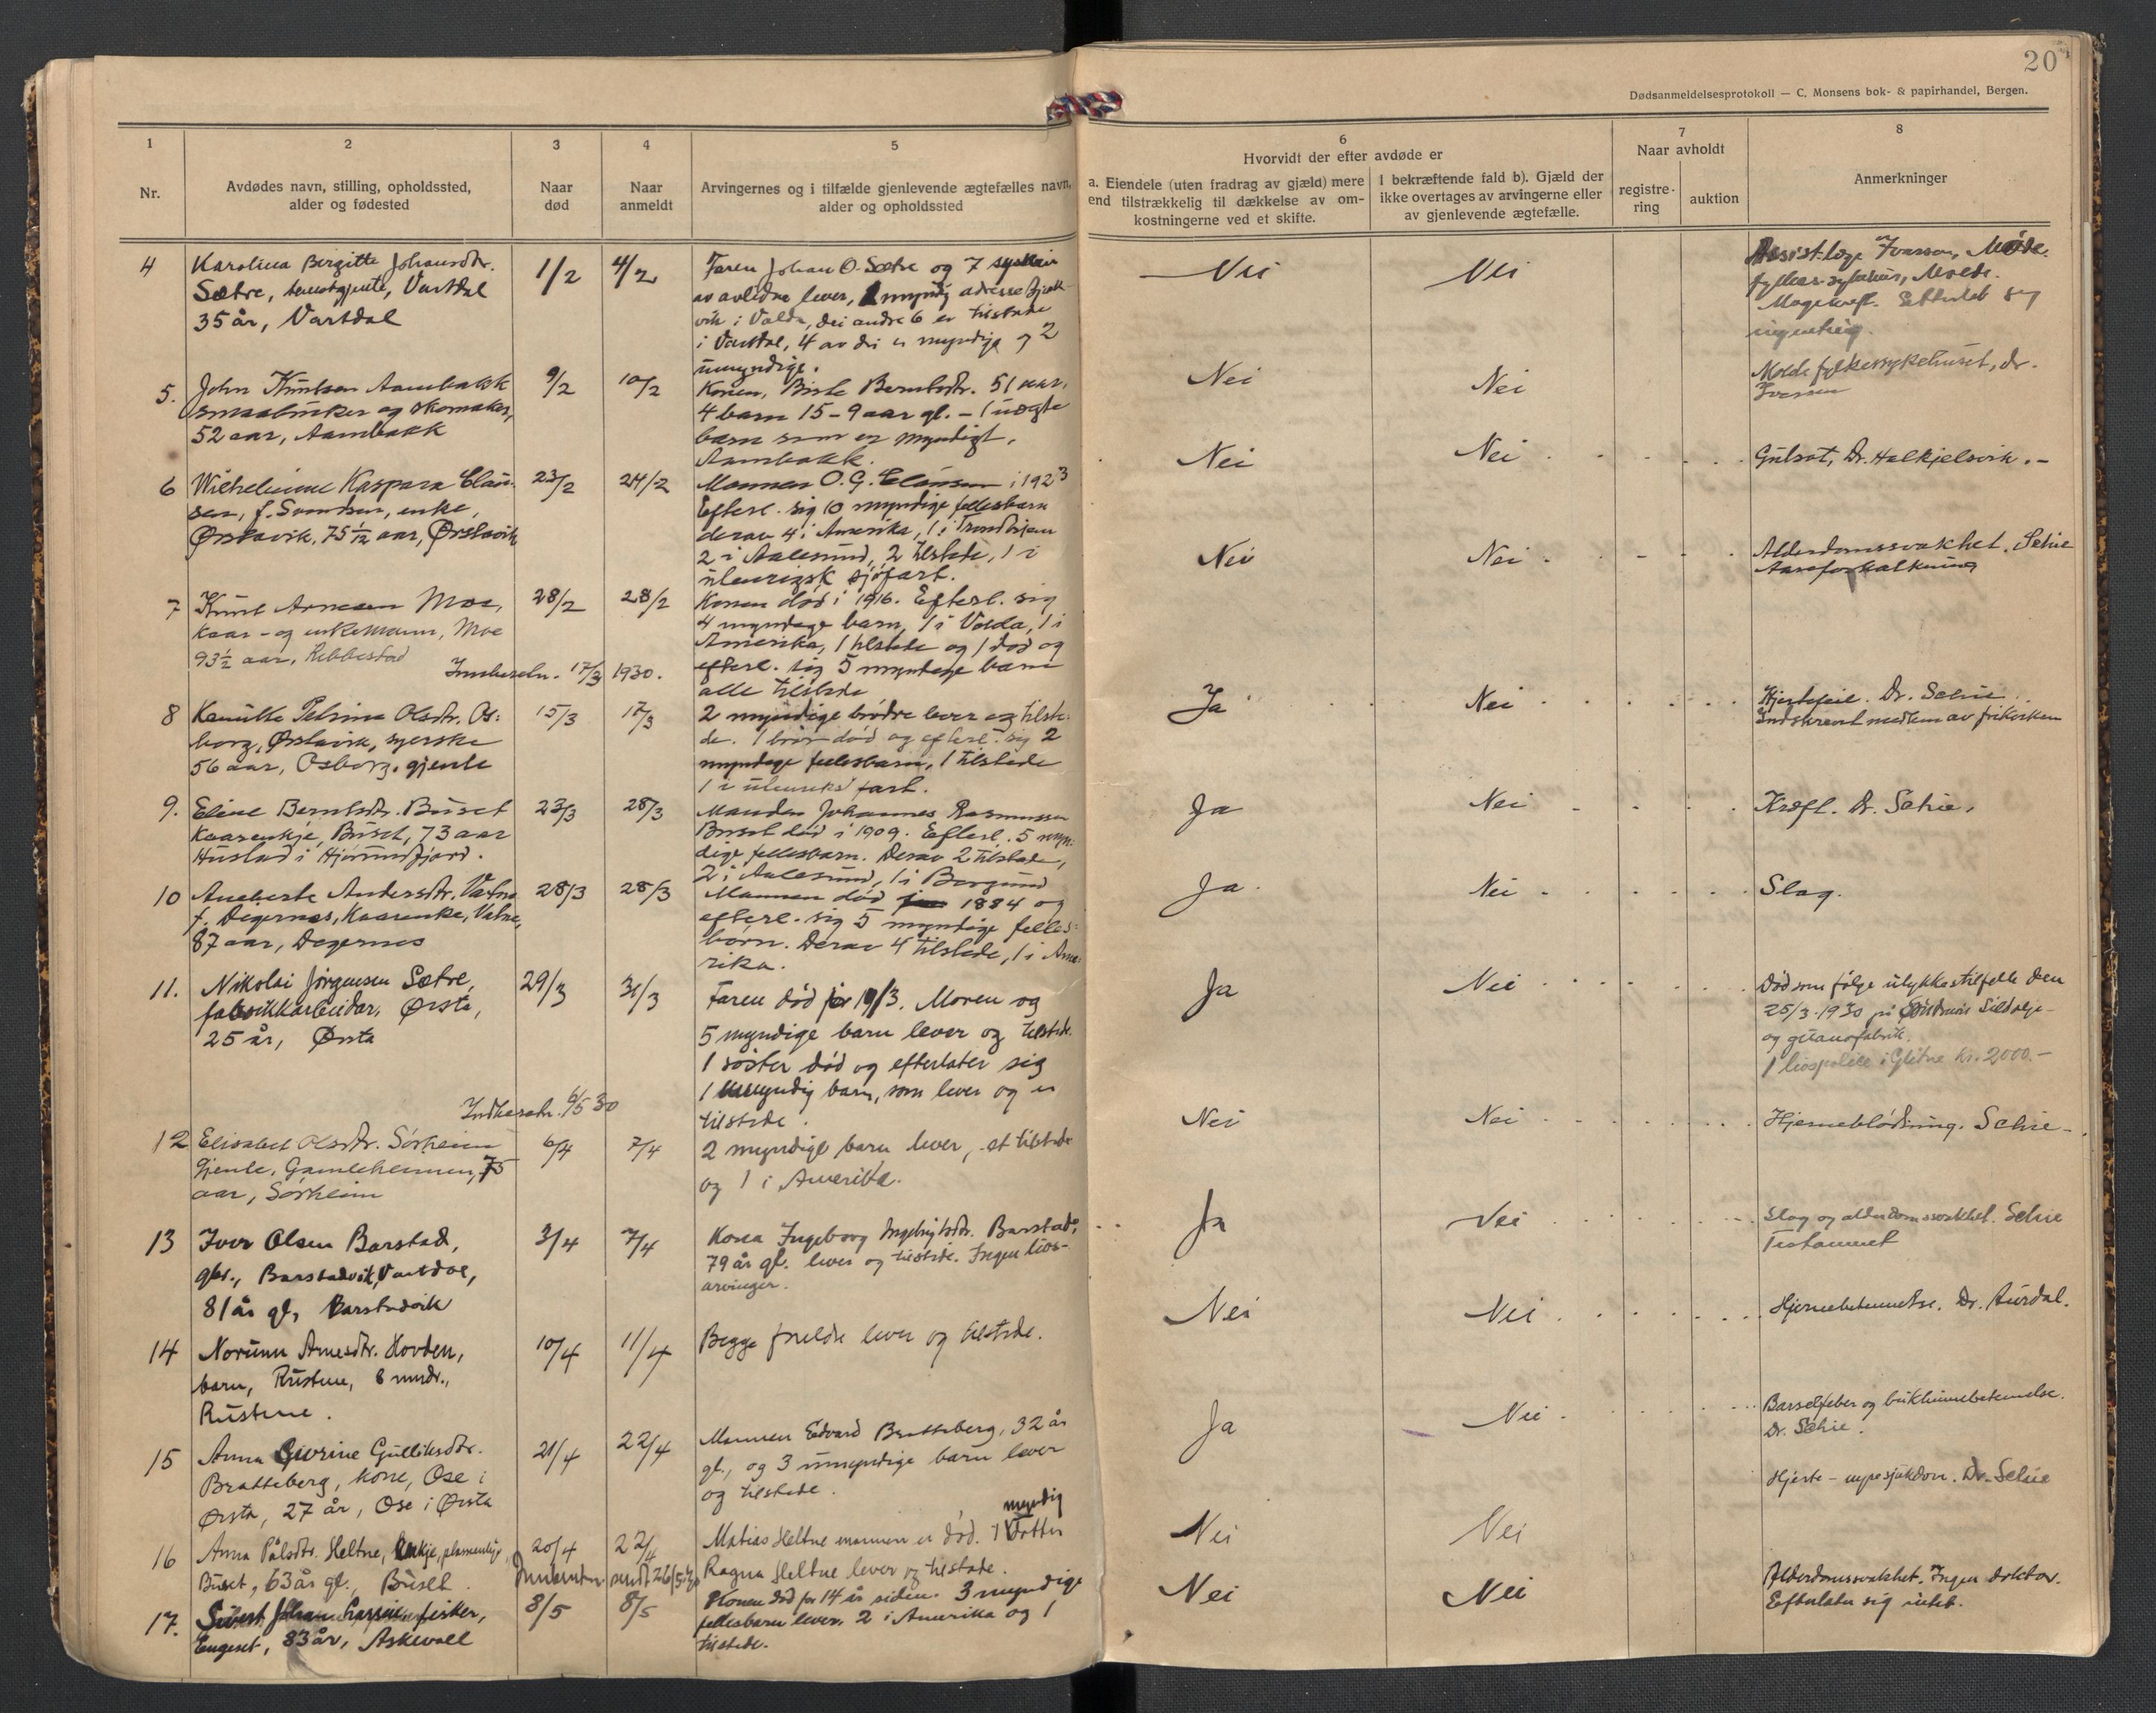 20
Dødsanmeldelsesprotokoll — C. Monsens bok- & papirhandel, Bergen.
1
Nr.
2
Avdødes navn, stilling, opholdssted,
alder og fødested
3
Naar
død
4
Naar
anmeldt
5
Arvingernes og i tilfælde gjenlevende ægtefælles navn,
alder og opholdssted
6
Hvorvidt der efter avdøde er
a. Eiendele (uten fradrag av gjæld) mere
end tilstrækkelig til dækkelse av om-
kostningerne ved et skifte.
I bekræftende fald b). Gjæld der
ikke overtages av arvingerne eller
av gjenlevende ægtefælle.
7
Naar avholdt
registre-
ring
auktion
8
Anmerkninger
4
Karolina Bergitte Johansdtr.
Sætre, tenestgjente, Vartdal
35 år, Vartdal
1/2
4/2
Faren Johan O. Sætre og 7 sysken
av avlidne lever, 1 myndig adresse
vik i Volda, dei andre 6 er tilstade
i Vartdal, 4 av dei er myndige og 2
umyndige.
Nei
Nei
Assist.læge Iversen, Molde
fylkessjukehus, Molde.
Magekræft. Etterlet seg
ingenting.
5.
John Knutsen Aambakk
smaabruker og skomaker,
52 aar, Aambakk
9/2
10/2
Konen, Berte Berntsdtr. 51 aar,
4 barn 15-9 aar gl. - 1 uægte
barn som er myndigt.
Aambakk.
Nei
Nei
Molde fylkessykehuset, dr.
Iversen
6
Wilhelmine Kaspara Claus-
sen, f. Svendsen, enke,
Ørstavik, 75 1/12 aar, Ørstavik
23/2
24/2
Mannen O. G. Clausen i 1923
Efterl. sig 10 myndige fellesbarn
derav 4 i Amerika, 1 i Trondhjem
2 i Aalesund, 2 tilstede, 1 i
utenrigsk sjøfart.
Nei
Nei
Gulsot, Dr. Halkjelsvik. -
7
Knut Arnesen Moe,
Kaar- og enkemann, Moe
93½ aar, Ribbestad
28/2
28/2
Konen død i 1916. Efterl. sig
4 myndige barn, 1 i Volda, 1 i
Amerika, 1 tilstede og 1 død og
efterl. sig 5 myndige barn
alle tilstede
Nei
Nei
Alderdomssvakhet. Schie
Aareforkalkning
Innberetn. 17/3 1930.
8
Kamilla Petrine Olsdtr. Os-
borg, Ørstavik, syerske
56 aar, Osborg. gjente
15/3
17/3
2 myndige brødre lever og tilste-
de. 1 bror død og efterl. sig 2
myndige fellesbarn, 1 tilstede
1 i utenriks fart.
Ja
Nei
Hjertefeil. Dr. Schie.
Indskrevet medlem av frikirken
9.
Eline Berntsdtr. Buset
Kaarenkje, Buset, 73 aar
Hustad i Hjørundfjord.
23/3
28/3
Manden Johannes Rasmussen
Buset død i 1909. Efterl. 5 myn-
dige fellesbarn. Derav 2 tilstede,
2 i Aalesund, 1 i Borgund
Ja
Nei
Kræft. Dr. Schie.
10
Aneberte Andersdtr. Vatne
f. Digernes, Kaarenke, Vatne,
87 aar, Digernes
28/3
28/3
Mannen død 1884 og
efterl. sig 5 myndige felles-
børn. Derav 4 tilstede, 1 i Ame-
rika.
Ja
Nei
Slag.
11.
Nikolai Jørgensen Sætre,
fabrikkarbeider, Ørsta,
25 år, Ørsta
29/3
31/3
Faren død 1913. Moren og
5 myndige barn lever og tilstede.
1 søster død og efterlater sig
1 umyndig barn, som lever og er
tilstede.
Ja
Nei
Død som følge ulykkestilfelle den
25/3-1930 på Søndmør Sildolje-
og guanofabrik.
1 livspolise i Glitne kr. 2000.-
Indberetn. 6/5 30
12
Elisabet Olsdtr. Sørheim
Gjente, Gamleheimen, 75
aar, Sørheim
6/4
7/4
2 myndige barn lever, et tilstede
og 1 i Amerika.
Nei
Nei
Hjerneblødning. Schie
13
Iver Olsen Barstad,
gbr., Barstadvik, Vartdal,
81 år gl. Barstadvik
3/4
7/4
Kona Ingeborg Ingebrigtsdtr. Barstad,
79 år gl. lever og tilstede. Ingen livs-
arvinger.
Ja
Nei
Slag og alderdomssvakhet. Schie
Testament
14
Norunn Arnesdtr. Hovden,
barn, Rustene, 8 mndr.,
Rustene.
10/4
11/4
Begge foreldre lever og tilstede.
Nei
Nei
Hjernebetennelse. Dr. Aurdal.
15
Anna Gurine Gulliksdtr.
Bratteberg, kone, Ose i
Ørsta, 27 år, Ose i Ørsta
21/4
22/4
Mannen Edvard Bratteberg, 32 år
gl., og 3 umyndige barn lever
og tilstede.
Ja
Nei
Barselfeber og bukhinnebetennelse.
Dr. Schie.
16
Anna Pålsdtr. Heltne, enkje,
Buset, 63 år gl., Buset.
20/4
22/4
Matias Heltne mannen er død. 1 myndig datter
Ragna Heltne lever og tilstede.
Nei
Nei
Hjerte- nyresjukdom. Dr. Schie
26/5 30
17.
Sivert Johan fisker,
Engeset, 83 år, Askevoll
8/5
8/5
Konen død for 14 år siden. 3 myndige
fellesbarn lever, 2 i Amerika og 1
tilstede.
Nei
Nei
Alderdomssvakhet. Ingen doktor.
Efterlater sig intet.